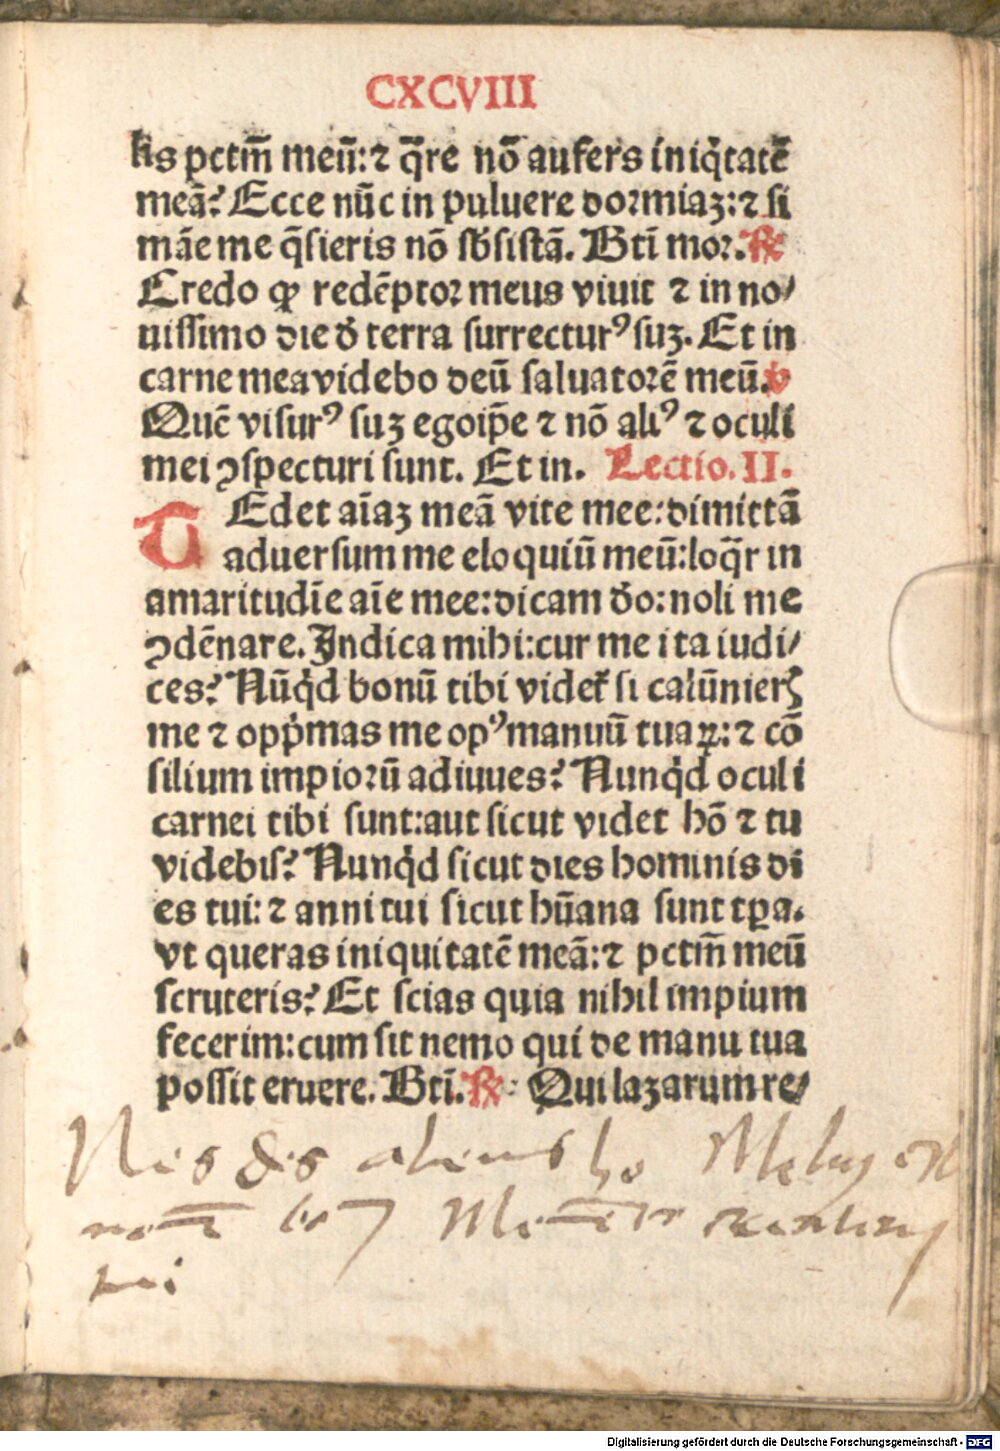 CXCVIII
lis pctm̄ meū: ⁊ q̄re nō aufers iniq̇tatē
meā? Ecce nūc in puluere dormiaꝫ: ⁊ si
māe me q̄sieris nō sb̄sistā. Bt̄i mor. ℟
Credo ꝙ redēptor meus viuit ⁊ in no/
uissimo die d̄ terra surrectur⁹ suꝫ. Et in
carne mea videbo deū saluatorē meū. v
Quē visur⁹ suꝫ ego ip̄e ⁊ nō ali⁹ ⁊ oculi
mei ꝯspecturi sunt. Et in. Lectio. II.
TEdet aīaꝫ meā vite mee: dimittā
aduersum me eloquiū meū: loq̄r in
amaritudīe aīe mee: dicam d̄o: noli me
ꝯdēnare. Indica mihi: cur me ita iudi/
ces? Nūq̇d bonū tibi videt̄ si calūnieris
me ⁊ opp̄mas me op⁹ manuū tuaꝝ: ⁊ cō
silium impiorū adiuues? Nunq̇d oculi
carnei tibi sunt: aut sicut videt hō ⁊ tu
videbis? Nunq̇d sicut dies hominis di
es tui: ⁊ anni tui sicut hūana sunt tꝑa.
vt queras iniquitatē meā: ⁊ pctm̄ meū
scruteris? Et scias quia nihil impium
fecerim: cum sit nemo qui de manu tua
possit eruere. Bt̄i. ℟ Qui lazarum re/
Digitalisierung gefördert durch die Deutsche Forschungsgemeinschaft - DFG